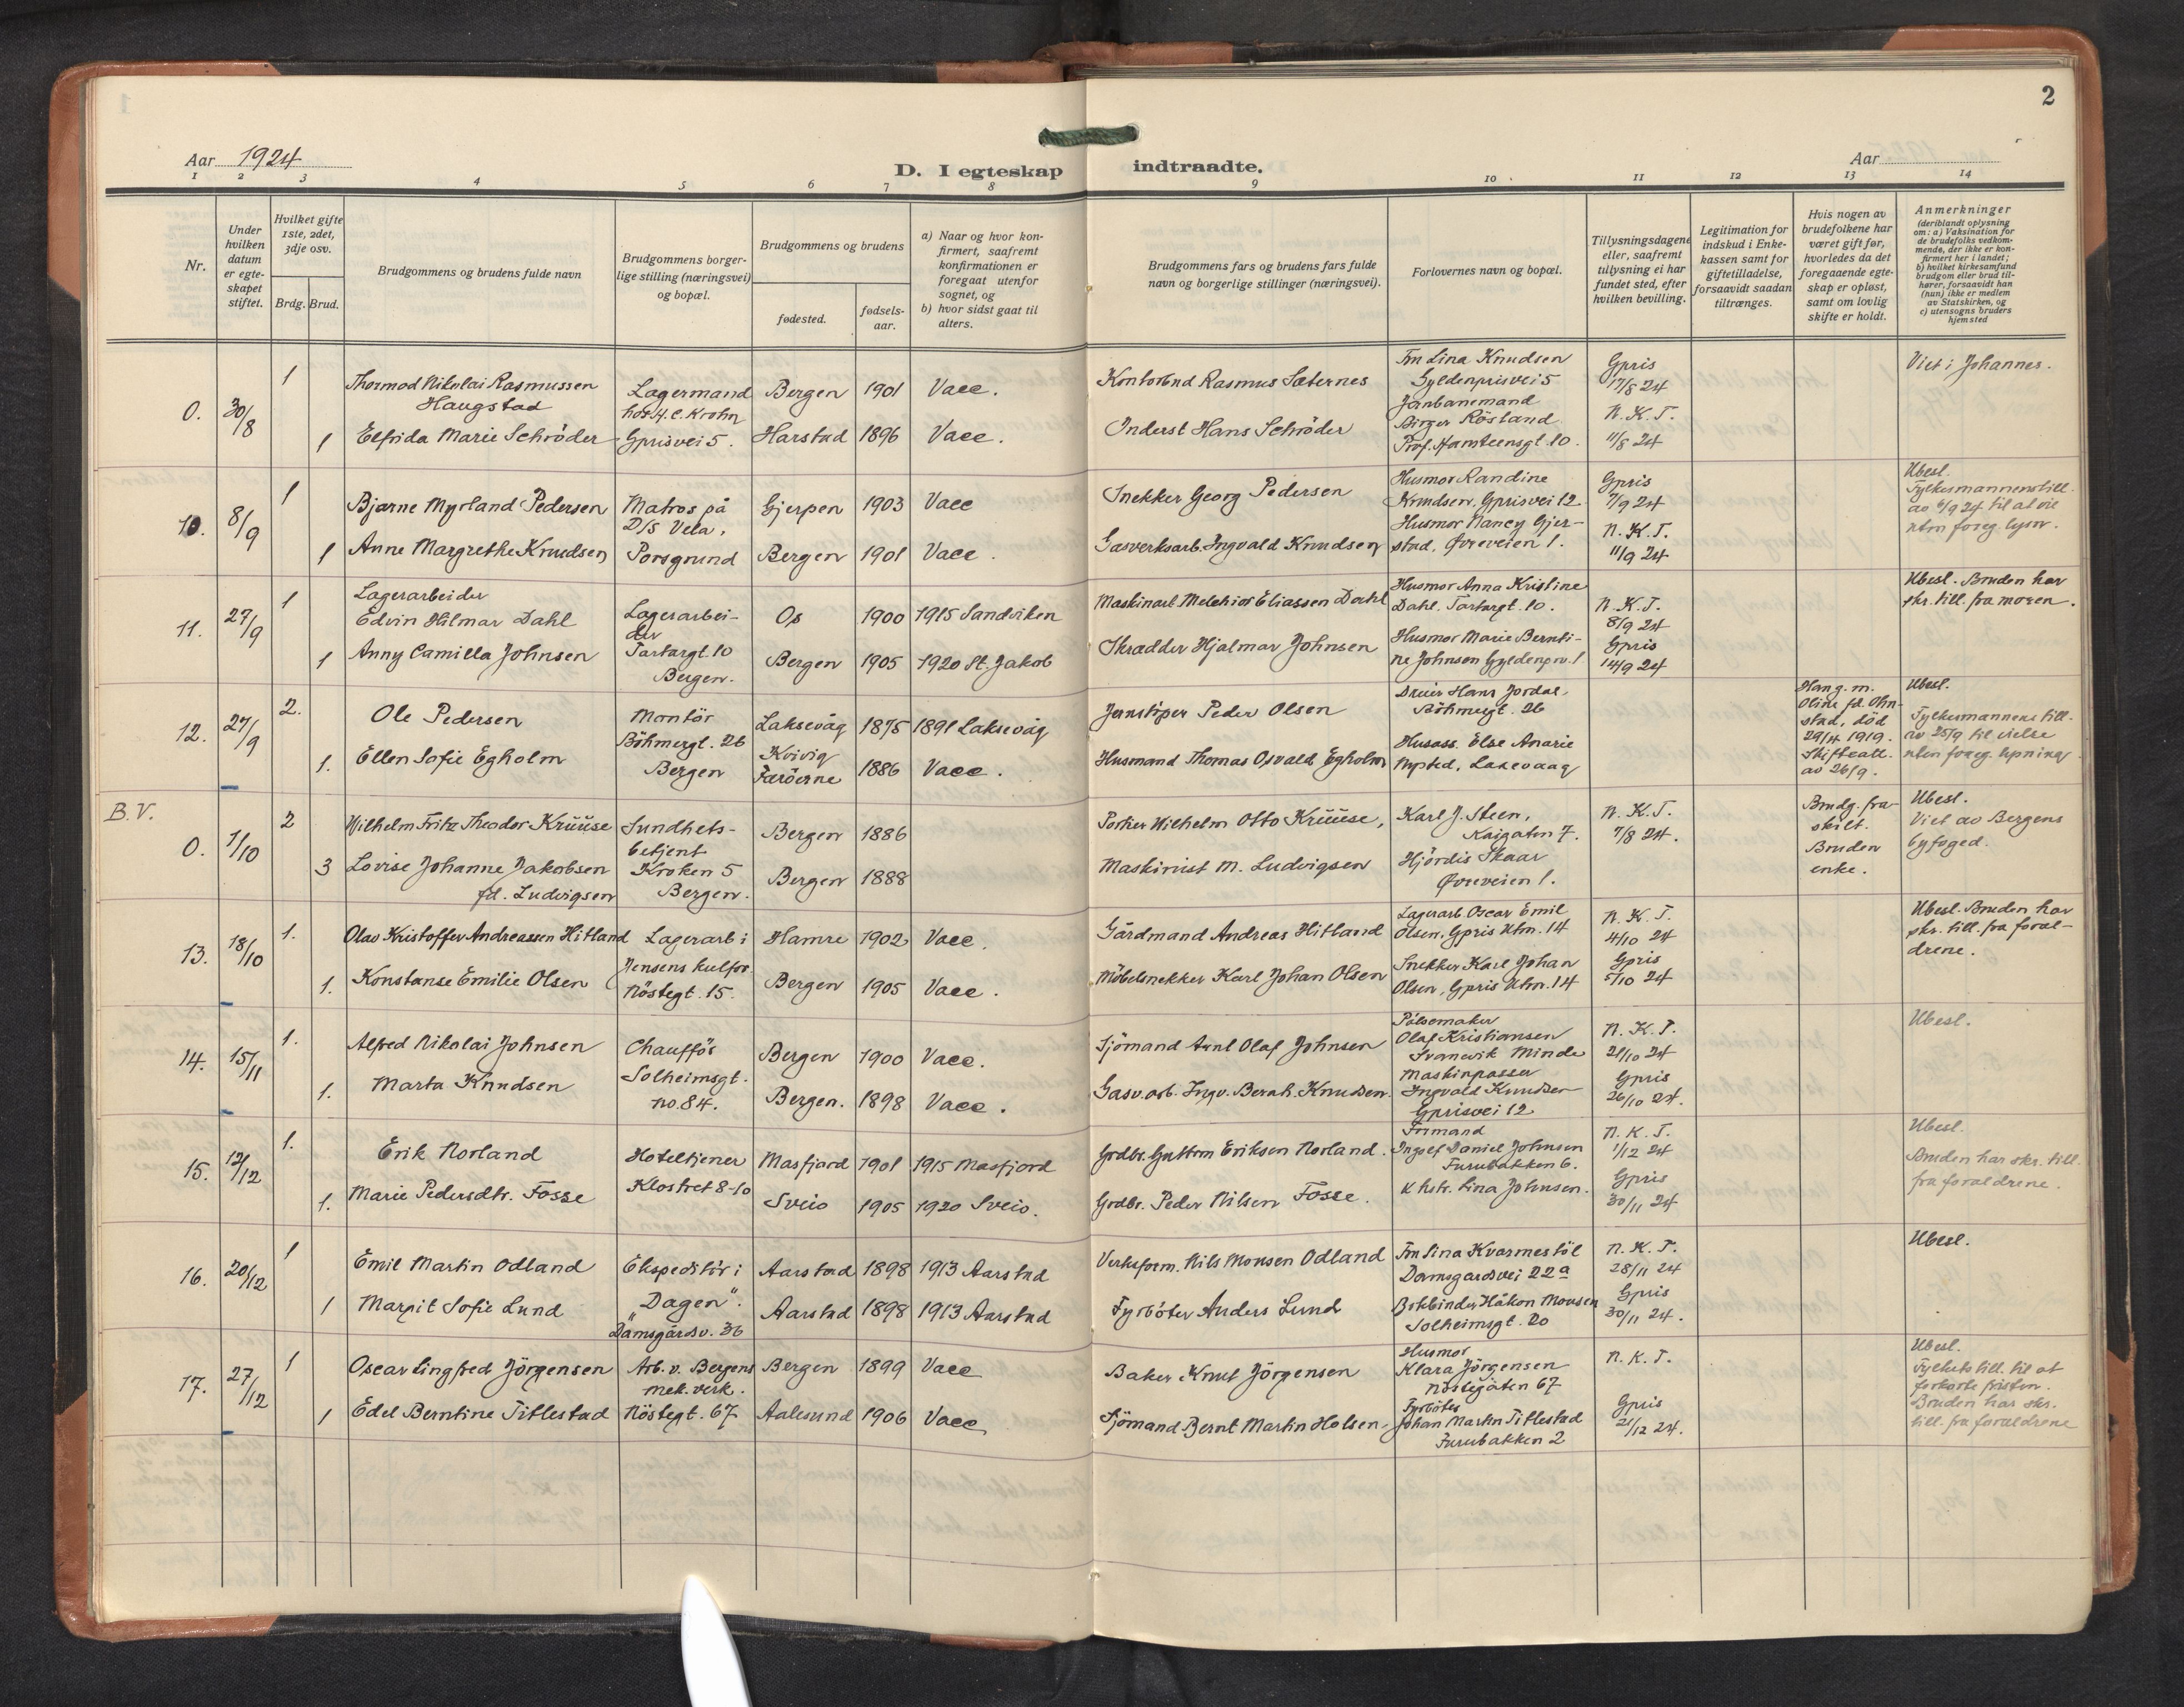 2
Aar 1924
D. I egteskap indtraadte.
Aar
1 2 3 4 5 6 7 8 9 10 11 12 13 14
Nr.
Under hvilken datum er egteskapet stiftet.
Hvilket gifte 1ste, 2det, 3dje osv.
Brdg. Brud.
Brudgommens og brudens fulde navn
Brudgommens borgerlige stilling (næringsvei) og bopæl.
Brudgommens og brudens
fødested.
fødselsaar.
a) Naar og hvor konfirmert, saafremt konfirmationen er foregaat utenfor sognet, og
b) hvor sidst gaat til alters.
Brudgommens fars og brudens fars fulde navn og borgerlige stillinger (næringsvei).
Forlovernes navn og bopæl.
Tillysningsdagene eller, saafremt tillysning ei har fundet sted, efter hvilken bevilling.
Legitimation for indskud i Enkekassen samt for giftetilladelse, forsaavidt saadan tiltrænges.
Hvis nogen av brudefolkene har været gift før, hvorledes da det foregaaende egteskap er opløst, samt om lovlig skifte er holdt.
Anmerkninger
(deriblandt oplysning om: a) Vaksination for de brudefolks vedkommende, der ikke er konfirmert her i landet; b) hvilket kirkesamfund brudgom eller brud tilhører, forsaavidt han (hun) ikke er medlem av Statskirken, og c) utensogns bruders hjemsted
0. 30/8
1 Thormod Nikolai Rasmussen Haugstad
Lagermand hos H. C. Krohn
Bergen 1901 Vacc.
Rasmus Sæternes
Fru Lina Knudsen
Gyldenprisvei 5
Gpris 17/8 24
Viet i Johannes.
1 Elfrida Marie Schröder
Gprisvei 5.
Harstad 1896 Vacc.
Inderst Hans Schröder
Janbanemand
Birger Röstand
N. K. T. 11/8 24
10. 8/9
1 Bjarne Myrland Pedersen
Matros på D/S Vela,
Gjerpen 1903 Vacc
Snekker Georg Pedersen
Husmor Randine
Knudsen, Gprisvei 12
Gpris 7/9 24
Ubesl.
Fylkesmannens till.
av 4/9 24 til at vie
uten foreg. lysn.
1 Anne Margrethe Knudsen
Porsgrund
Bergen 1901 Vacc.
Gasverksarb. Ingvald Knudsen
Husmor Nancy Gjerstad, Øvreveien 1.
N. K. T. 11/9 24
11. 27/9
1 Lagerarbeider
Edvin Hilmar Dahl
Lagerarbeider
Tartargt. 10
Bergen.
Os 1900 1915 Sandviken
Maskinarb Melchior Eliassen Dahl
Husmor Anna Kristine
Dahl. Tartargt. 10.
N. K. T. 8/9 24
Ubesl. Bruden har
skr. till. fra moren.
1 Anny Camilla Johnsen
Bergen 1905 1920 St. Jakob
Skrædder Hjalmar Johnsen
Husmor Marie Berntine Johnsen Gyldenprv. 1
Gpris 14/9 24
12. 27/9
2. Ole Pedersen
Montör
Böhmergt. 26
Bergen
Laksevåg 1875 1891 Laksevåg
Jernstöper Peder Olsen
Dreier Hans Jordal,
Böhmergt. 26
Han g. m.
Oline fd. Ohnstad, död
29/4 1919.
Skifteatt.
av 26/9.
Ubesl.
Fylkesmannens till.
av 25/9 til vielse
uten foreg. lysning
1. Ellen Sofie Egholm
Kvivig
Færöerne 1886 Vacc.
Husmand Thomas Osvald Egholm
Husass. Else Anarie
Nysted, Laksevaag
B. V.
0. 1/10
2 Wilhelm Fritz Theodor Krüüse
Sundhetsbetjent
Kroken 5
Bergen.
Bergen 1886
Portier Wilhelm Otto Krüüse,
Karl J. Steen,
Kaigaten 7.
N. K. T. 7/8 24.
Brudg. fraskilt.
Bruden
enke.
Ubesl.
Viet av Bergens
byfoged.
3 Lovise Johanne Jakobsen
fd. Ludvigsen
Bergen 1888
Maskinist M. Ludvigsen
Hjördis Skaar
Øvreveien 1.
13. 18/10
1. Olav Kristoffer Andreassen Hitland
Lagerarb i
Jensens kulfor.
Nöstegt. 15.
Hamre 1902 Vacc.
Gårdmand Andreas Hitland
Lagerarb Oscar Emil
Olsen, Gpris Utm. 14
N. K. T. 4/10 24
Ubesl. Bruden har
skr. till. fra foreldrene.
1. Konstanse Emilie Olsen
Bergen 1905 Vacc.
Möbelsnekker Karl Johan Olsen
Snekker Karl Johan
Olsen, Gpris Utm. 14
Gpris 5/10 24
14. 15/11
1. Alfred Nikolai Johnsen
Chaufför
Solheimsgt.
no. 84.
Bergen 1900 Vacc.
Sjömand Arnt Olaf Johnsen
Pölsemaker
Olaf Kristiansen
Svanevik Minde
N. K. T. 21/10 24
Ubesl.
1. Marta Knudsen
Bergen. 1898 Vacc.
Gasv. arb. Ingv. Bernh. Knudsen
Maskinpasser
Ingvald Knudsen
Gprisvei 12
Gpris 26/10 24.
15. 12/12
1. Erik Norland
Hoteltjener
Klostret 8-10
Masfjord 1901 1915 Masfjord
Grdbr. Guttorm Eriksen Norland.
Formand
Ingolf Daniel Johnsen
Furubakken 6.
N. K. T. 1/12 24
Ubesl.
Bruden har skr. till.
fra foreldrene.
1. Marie Pedersdtr. Fosse
Sveio 1905 1920 Sveio.
Grdbr. Peder Nilsen Fosse.
Lina Johnsen.
Gpris 30/11 24
16. 20/12
1 Emil Martin Odland
Ekspeditör i
"Dagen".
Damsgårdsv. 36
Aarstad 1898 1913 Aarstad
Verksform. Nils Monsen Odland
Fru Lina Kvarmestöl
Damsgardsvei 22a
N. K. T. 28/11 24
Ubesl.
1 Margit Sofie Lund
Aarstad 1898 1913 Aarstad
Fyrböter Anders Lund
Bokbinder Håkon Monsen
Solheimsgt. 20
Gpris 30/11 24.
17. 27/12
1 Oscar Lingfred Jörgensen
Arb. v. Bergens
mek. verk.
Nöstegt. 67
Bergen 1899 Vacc
Baker Knut Jörgensen
Husmor
Klara Jörgensen
Nöstegaten 67
N. K. T.
Ubesl.
till. til at
forkorte fristen.
Bruden har skr.
till. fra foreldrene
1 Edel Berntine Titlestad
Aalesund 1906 Vacc
Sjömand Bernt Martin Holsen
Fyrböter
Johan Martin Titlestad
Furubakken 2
Gpris 21/12 24.